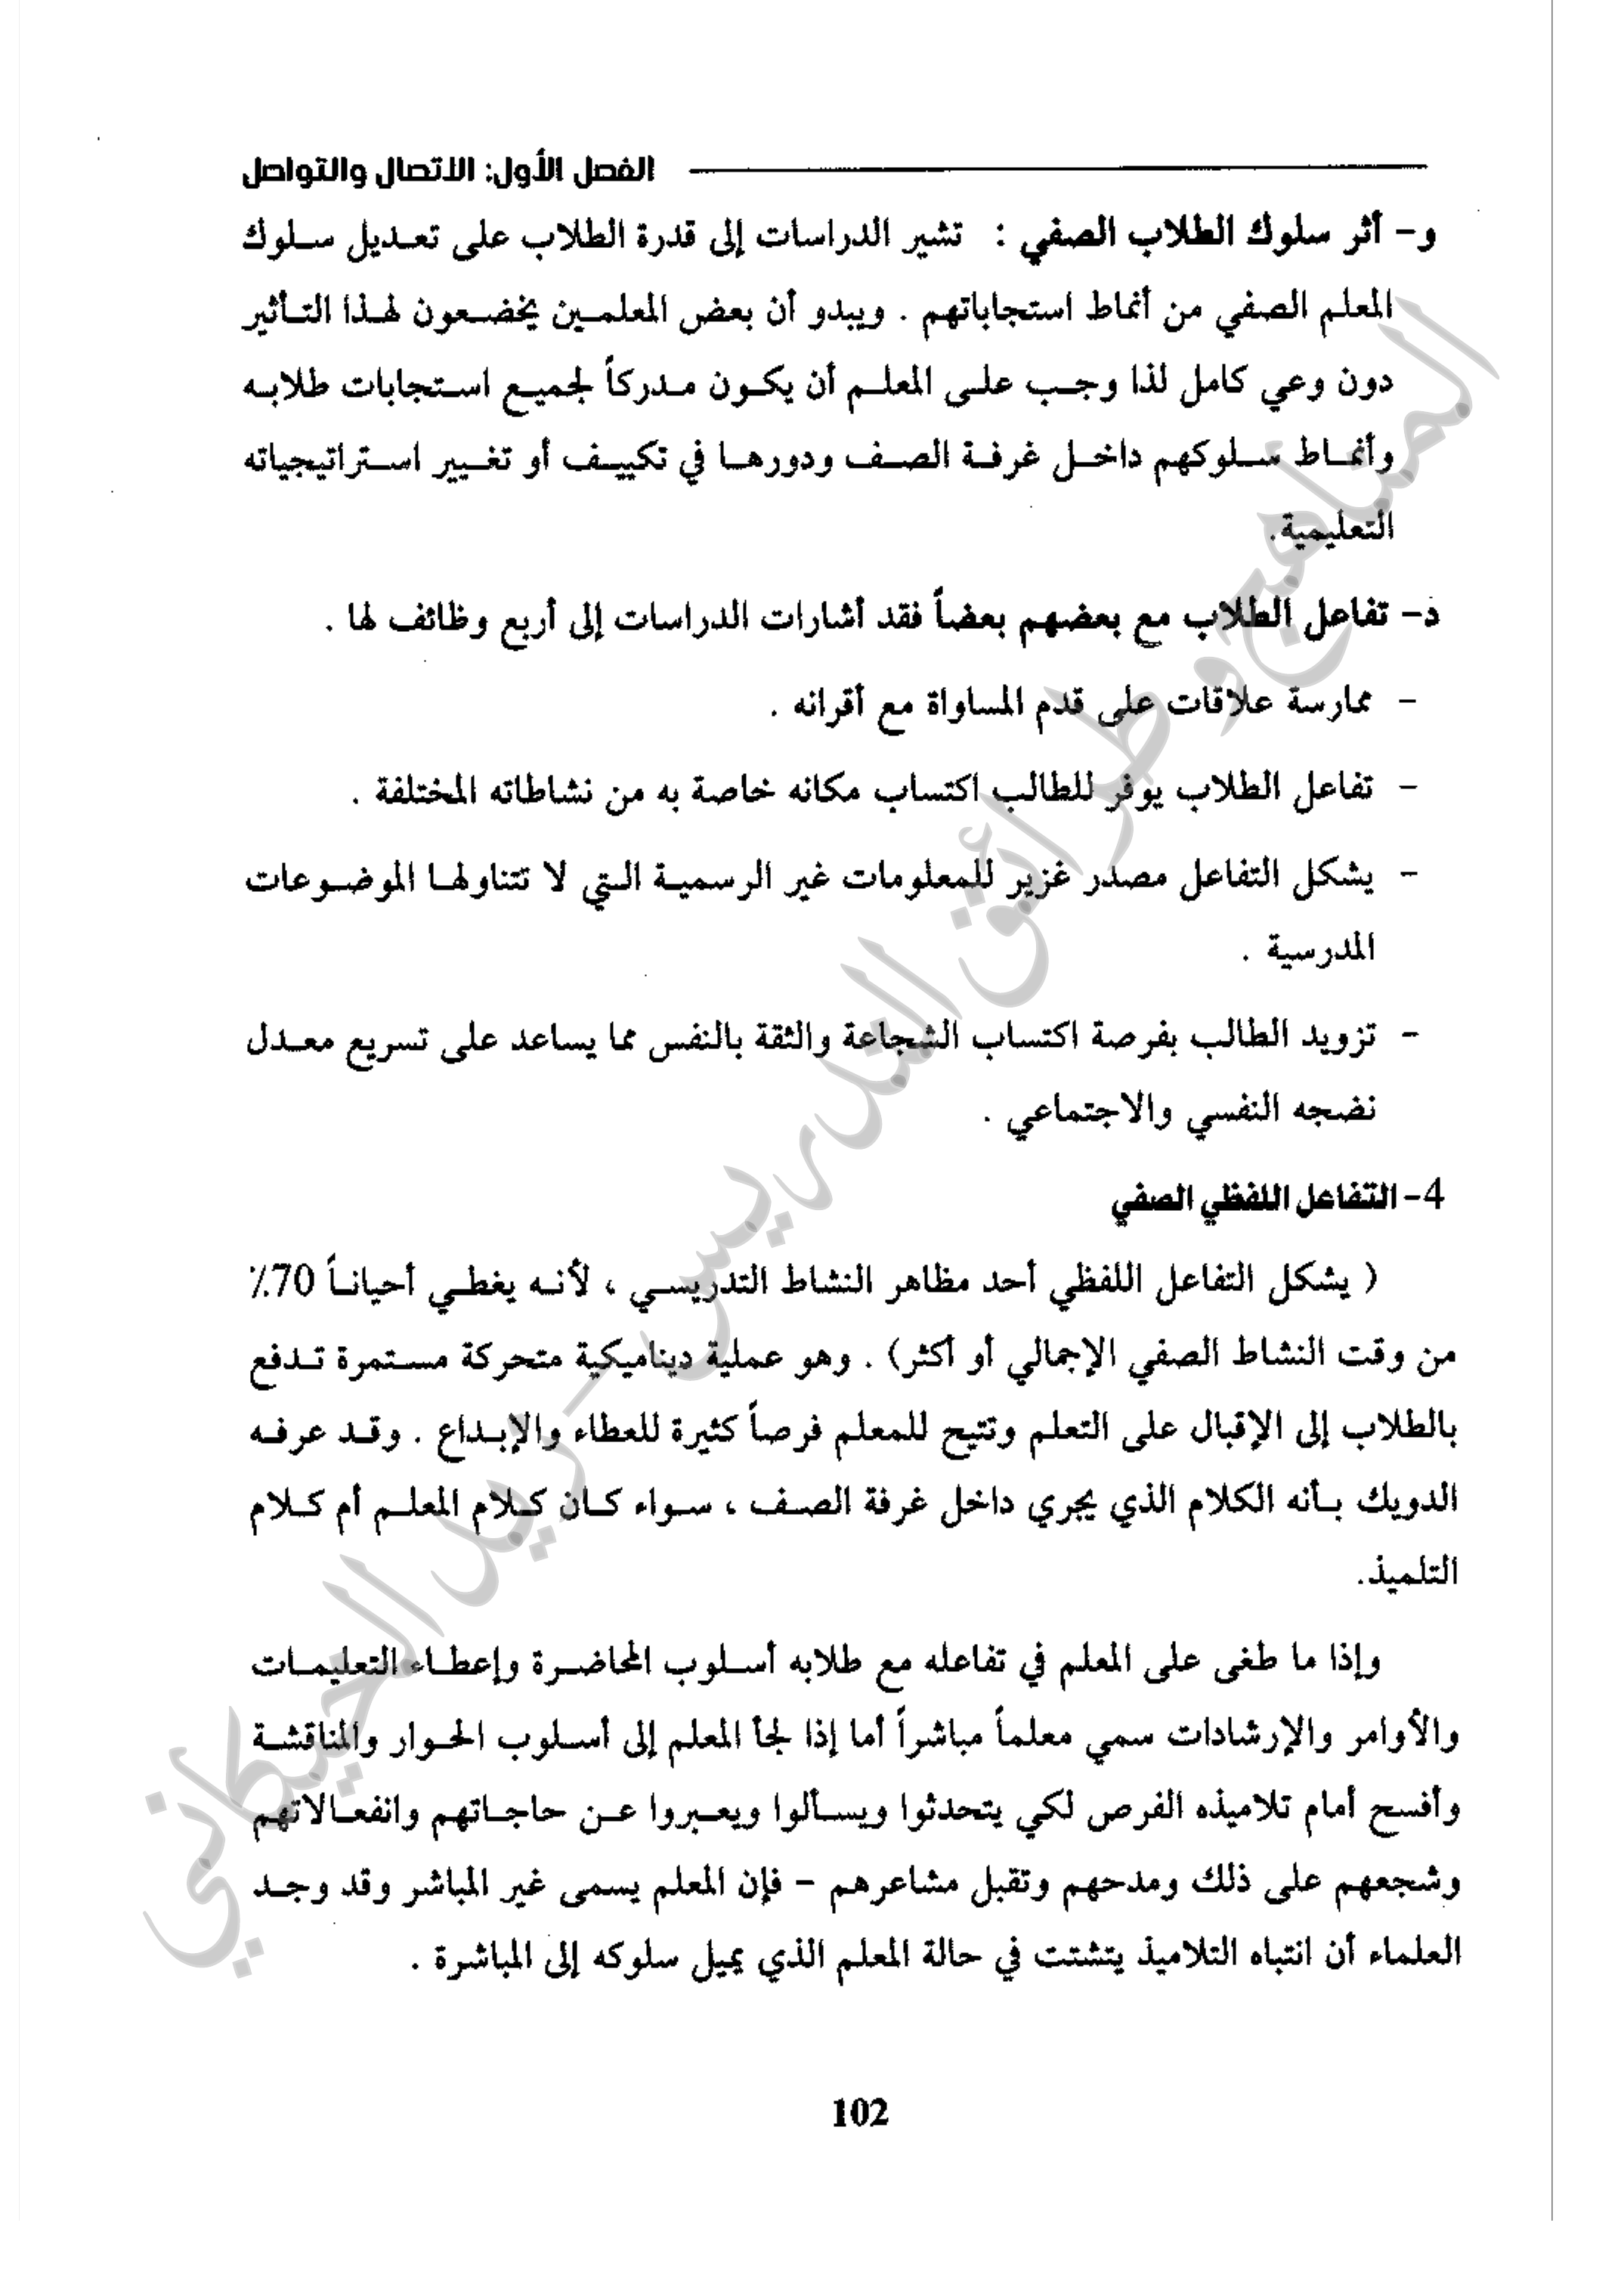 الفصل الأول: الاتصال والتواصل
و- أثر سلوك الطلاب الصفي : تشير الدراسات إلى قدرة الطلاب على تعديل سلوك
المعلم الصفي من أنماط استجاباتهم . ويبدو أن بعض المعلمين يخضعون لهذا التأثير
دون وعي كامل لذا وجب على المعلم أن يكون مدركاً لجميع استجابات طلابه
وأنماط سلوكهم داخل غرفة الصف ودورها في تكييف أو تغيير استراتيجياته
التعليمية.
د- تفاعل الطلاب مع بعضهم بعضاً فقد أشارات الدراسات إلى أربع وظائف لها .
- ممارسة علاقات على قدم المساواة مع أقرانه .
- تفاعل الطلاب يوفر للطالب اكتساب مكانه خاصة به من نشاطاته المختلفة .
- يشكل التفاعل مصدر غزير للمعلومات غير الرسمية التي لا تتناولها الموضوعات
المدرسية .
- تزويد الطالب بفرصة اكتساب الشجاعة والثقة بالنفس مما يساعد على تسريع معدل
نضجه النفسي والاجتماعي .
4- التفاعل اللفظي الصفي
( يشكل التفاعل اللفظي أحد مظاهر النشاط التدريسي ، لأنه يغطي أحياناً 70٪
من وقت النشاط الصفي الإجمالي أو أكثر) . وهو عملية ديناميكية متحركة مستمرة تدفع
بالطلاب إلى الإقبال على التعلم وتتيح للمعلم فرصاً كثيرة للعطاء والإبداع . وقد عرفه
الدويك بأنه الكلام الذي يجري داخل غرفة الصف ، سواء كان كلام المعلم أم كلام
التلميذ.
وإذا ما طغى على المعلم في تفاعله مع طلابه أسلوب المحاضرة وإعطاء التعليمات
والأوامر والإرشادات سمي معلماً مباشراً أما إذا لجأ المعلم إلى أسلوب الحوار والمناقشة
وأفسح أمام تلاميذه الفرص لكي يتحدثوا ويسألوا ويعبروا عن حاجاتهم وانفعالاتهم
وشجعهم على ذلك ومدحهم وتقبل مشاعرهم - فإن المعلم يسمى غير المباشر وقد وجد
العلماء أن انتباه التلاميذ يتشتت في حالة المعلم الذي يميل سلوكه إلى المباشرة .
102
المناهج وطرائق التدريس - ريد الخيكاني